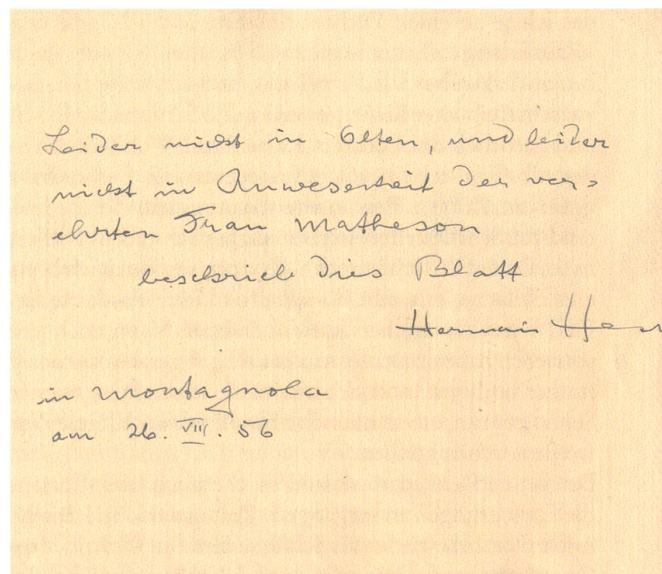 Leider nicht in Olten, und leider
nicht in Anwesenheit der ver=
ehrten Frau Matheson
beschrieb dies Blatt
Hermann
in Montagnola
am 26. VIII. 56